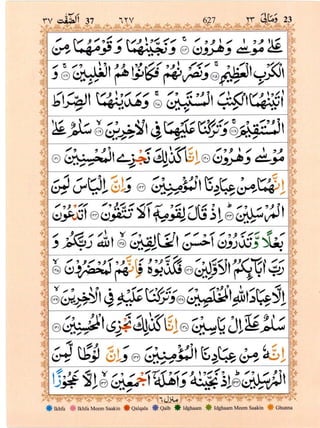 ٣٧ الصّٰفّٰت 37 ٦٢٧ 627 ٢٣ وَمَالِیَ 23
عَلٰى مُوْسٰى وَهٰرُوْنَ ۞ وَنَجَّيْنٰهُمَا وَقَوْمَهُمَا مِنَ
الْكَرْبِ الْعَظِيْمِ ۞ وَنَصَرْنٰهُمْ فَكَانُوْا هُمُ الْغٰلِبِيْنَ ۞ وَ
اٰتَيْنٰهُمَا الْكِتٰبَ الْمُسْتَبِيْنَ ۞ وَهَدَيْنٰهُمَا الصِّرَاطَ
الْمُسْتَقِيْمَ ۞ وَتَرَكْنَا عَلَيْهِمَا فِى الْاٰخِرِيْنَ ۞ سَلٰمٌ عَلٰى
مُوْسٰى وَهٰرُوْنَ ۞ اِنَّا كَذٰلِكَ نَجْزِى الْمُحْسِنِيْنَ ۞
اِنَّهُمَا مِنْ عِبَادِنَا الْمُؤْمِنِيْنَ ۞ وَاِنَّ اِلْيَاسَ لَمِنَ
الْمُرْسَلِيْنَ ۞ اِذْ قَالَ لِقَوْمِهٖٓ اَلَا تَتَّقُوْنَ ۞ اَتَدْعُوْنَ
بَعْلًا وَّتَذَرُوْنَ اَحْسَنَ الْخَالِقِيْنَ ۞ اللّٰهَ رَبَّكُمْ وَ
رَبَّ اٰبَآئِكُمُ الْاَوَّلِيْنَ ۞ فَكَذَّبُوْهُ فَاِنَّهُمْ لَمُحْضَرُوْنَ ۞
اِلَّا عِبَادَ اللّٰهِ الْمُخْلَصِيْنَ ۞ وَتَرَكْنَا عَلَيْهِ فِى الْاٰخِرِيْنَ ۞
سَلٰمٌ عَلٰٓى اِلْ يَاسِيْنَ ۞ اِنَّا كَذٰلِكَ نَجْزِى الْمُحْسِنِيْنَ ۞
اِنَّهٗ مِنْ عِبَادِنَا الْمُؤْمِنِيْنَ ۞ وَاِنَّ لُوْطًا لَّمِنَ
الْمُرْسَلِيْنَ ۞ اِذْ نَجَّيْنٰهُ وَاَهْلَهٗٓ اَجْمَعِيْنَ ۞ اِلَّا عَجُوْزًا
منزل ٦
Ikhfa Ikhfa Meem Saakin Qalqala Qalb Idghaam Idghaam Meem Saakin Ghunna